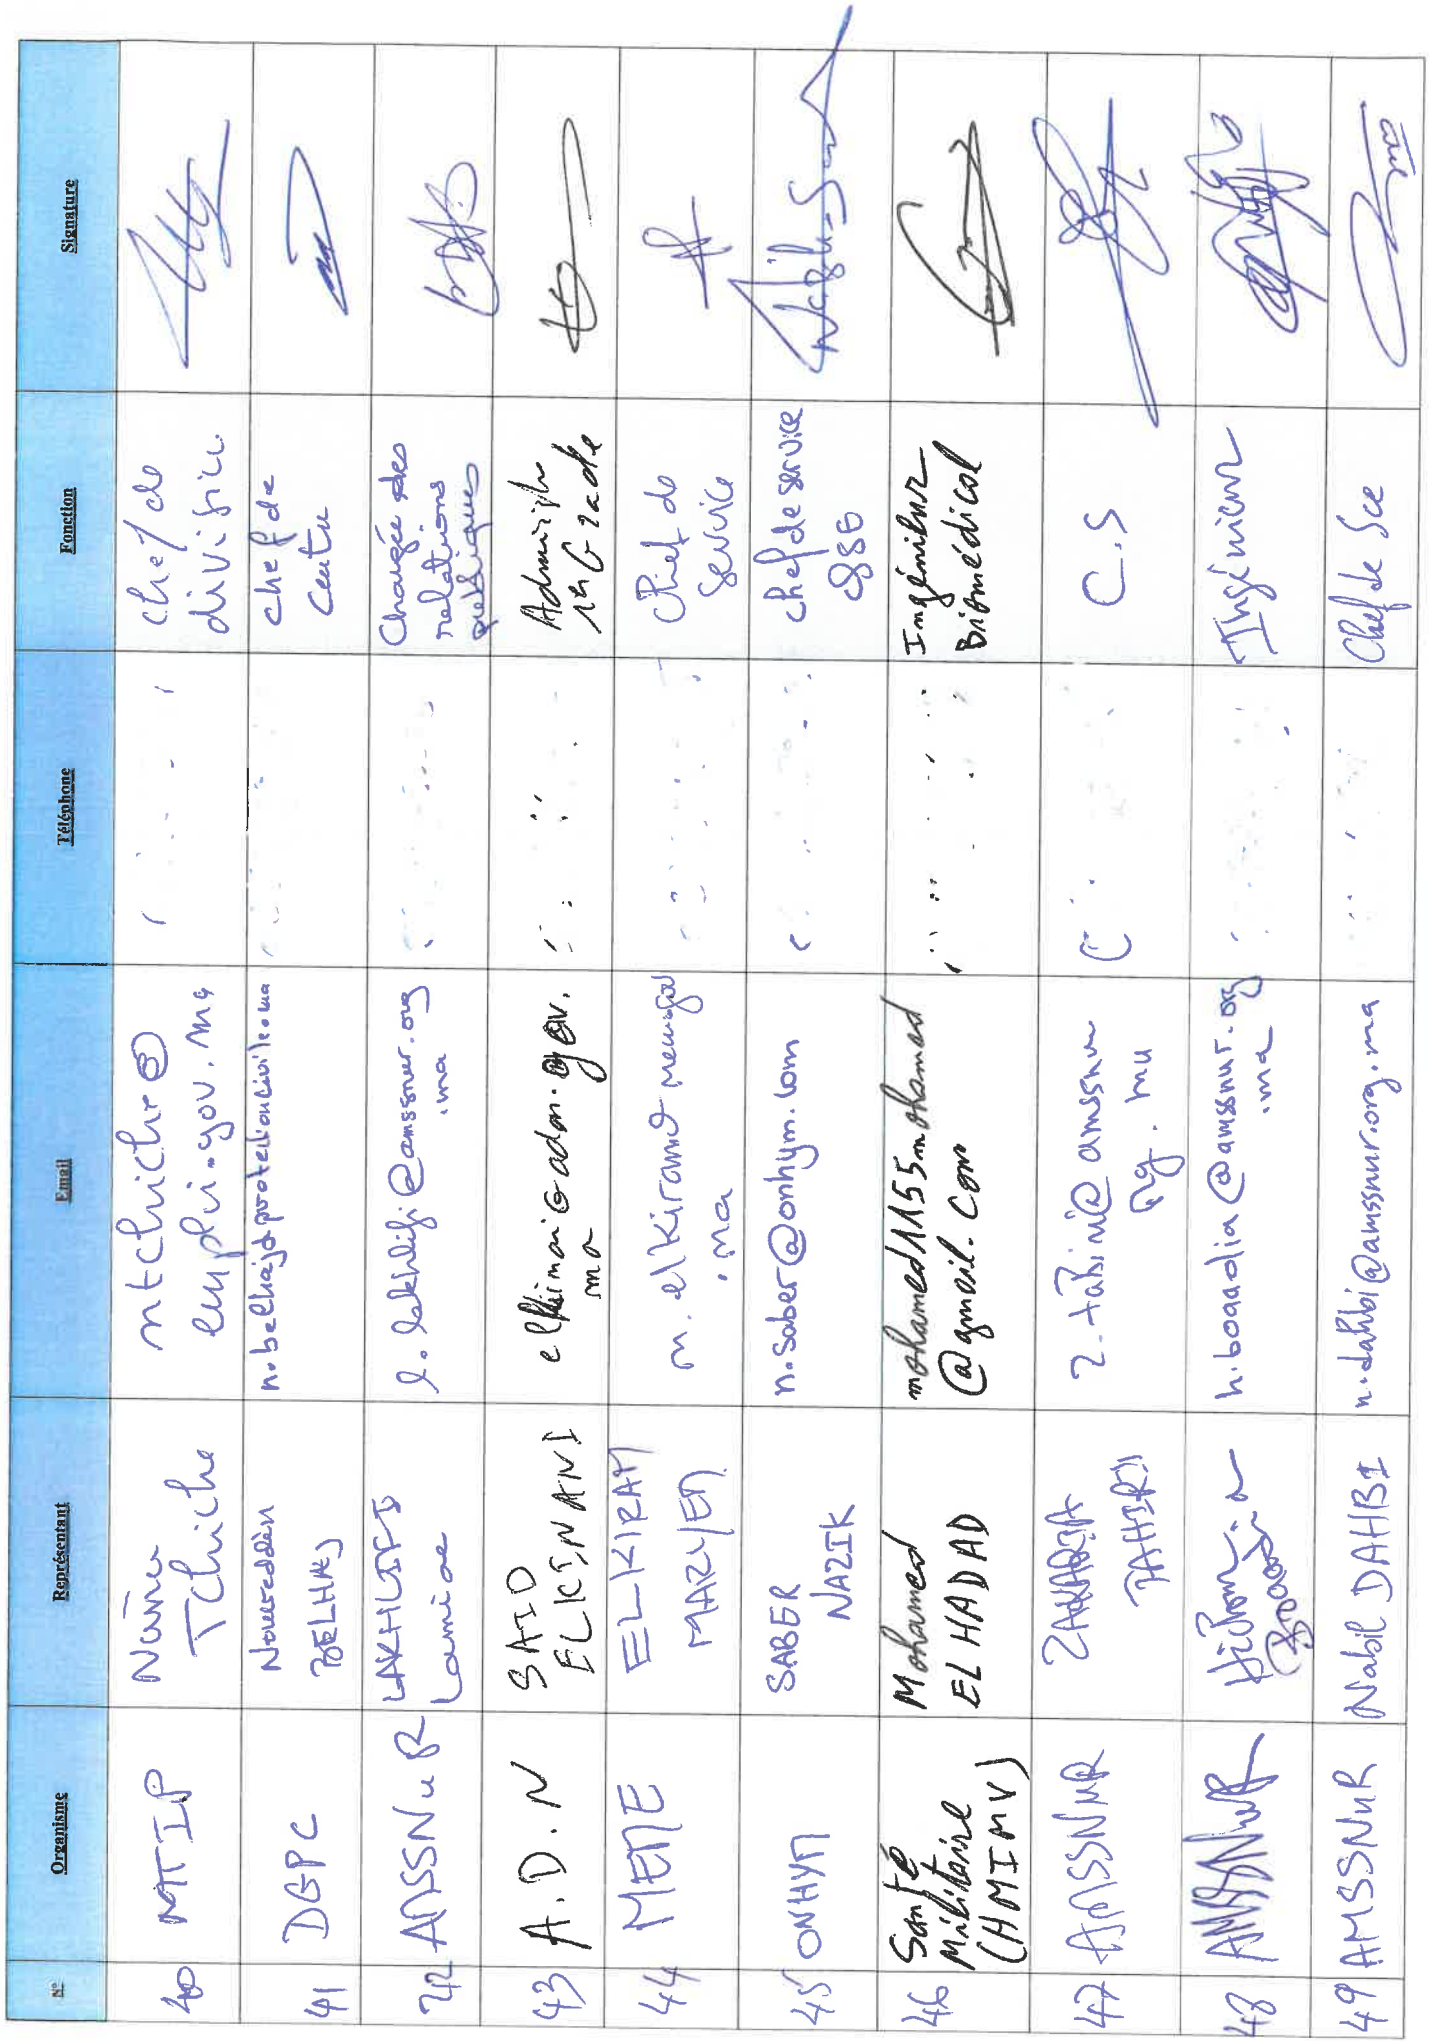 N° Organisme Représentant Email Téléphone Fonction Signature
40 MTIP Naima Tchiche ntchiche@ emploi.gov.ma chef de division
41 DGPC Noureddin BELHAJ chef de Centre
42 AMSSNuR LAKHLIFI Lamiae l.lakhlifi@amssnur.org .ma Chargée des relations publiques
43 A.D.N SAID ELKINANI ma Administr 1er Grade
44 MEME ELKIRAM MARYEM .ma Chef de service
45 ONHYM SABER NAZIK n.saber@onhym.com chef de service
46 Santé Militaire (HMIMV) Mohamed EL HADAD mohamed1155mohamed @gmail.com Ingénieur Biomédical
47 AMSSNUR ZAKARIA TAHIRI z.tahiri@amssnur C.S
48 AMSSNuR Hicham h.boaadlia@amssnur.org .ma Ingénieur
49 AMSSNuR Nabil DAHBI n.dahbi@amssnur.org.ma Chef de Sce